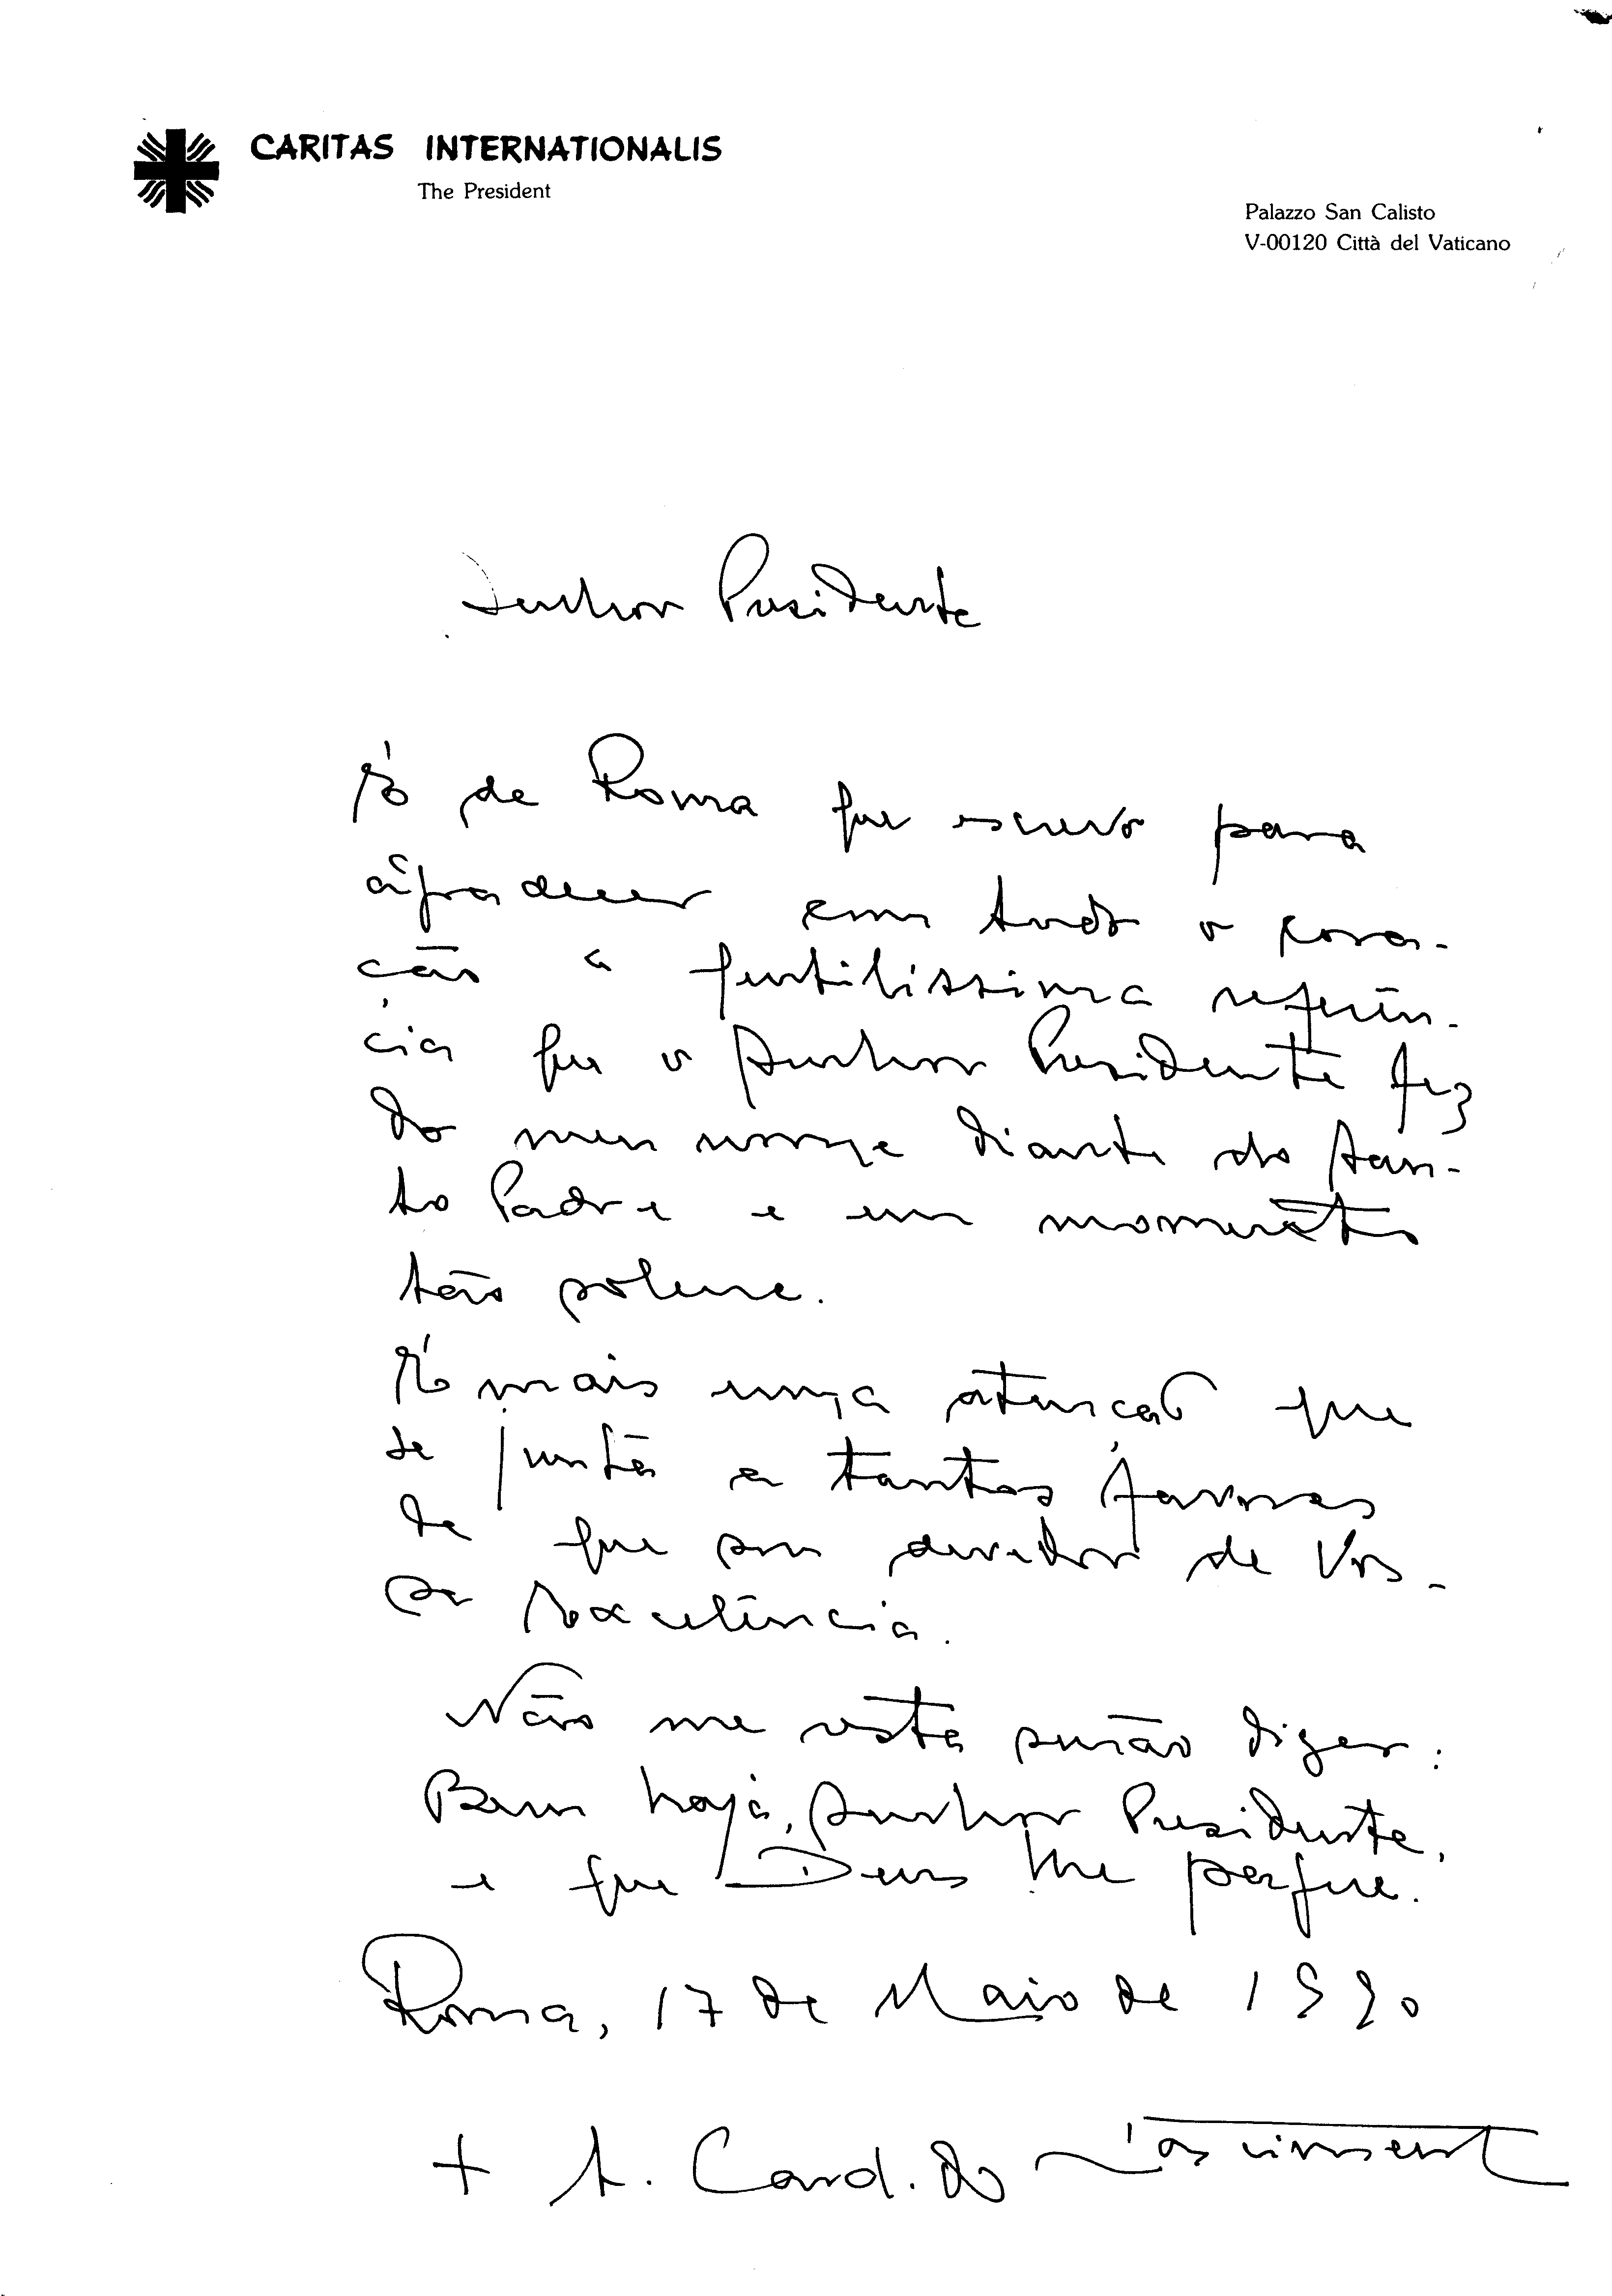 CARITAS INTERNATIONALIS
The President
Palazzo San Calisto
V-00120 Città del Vaticano
Senhor Presidente
É de Roma que escrevo para
agradecer com todo o cora-
ção a gentilíssima referên-
cia que o Senhor Presidente fez
do meu nome diante do San-
to Padre e em momento
tão solene.
É mais uma atenção que
se junta a tantos favores
de que sou devedor de Vos-
sa Excelência.
Não me resta senão dizer:
Bem haja, Senhor Presidente,
e que Deus lhe pague.
Roma, 17 de Maio de 1990
+ A. Card. do Nascimento